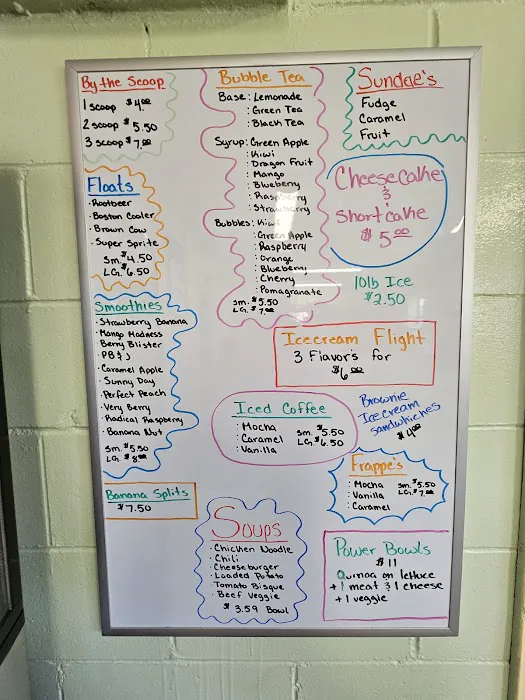 By the Scoop
1 scoop $4.00
2 scoop $5.50
3 scoop $7.00
Floats
· Rootbeer
· Boston Cooler
· Brown Cow
· Super Sprite
Sm. $4.50
LG. $6.50
Smoothies
· Strawberry Banana
· Mango Madness
· Berry Blister
· PB & J
· Caramel Apple
· Sunny Day
· Perfect Peach
· Very Berry
· Radical Raspberry
· Banana Nut
Sm. $5.50
LG. $8.00
Banana Splits
$7.50
Bubble Tea
Base: Lemonade
: Green Tea
: Black Tea
Syrup: Green Apple
: Kiwi
: Dragon Fruit
: Mango
: Blueberry
: Raspberry
: Strawberry
Bubbles: Kiwi
: Green Apple
: Raspberry
: Orange
: Blueberry
: Cherry
: Pomagranate
Sm. $5.50
LG. $7.00
Sundae's
Fudge
Caramel
Fruit
Cheesecake
&
Shortcake
$5.00
10lb Ice
$2.50
Icecream Flight
3 Flavor's for
$6.00
Iced Coffee
· Mocha
· Caramel
· Vanilla
Sm. $5.50
LG. $6.50
Brownie
Icecream
Sandwhiches
$4.00
Frappe's
· Mocha
· Vanilla
· Caramel
Sm. $5.50
LG. $7.00
Soups
· Chicken Noodle
· Chili
· Cheeseburger
· Loaded Potato
Tomato Bisque
· Beef Veggie
$3.59 Bowl
Power Bowls
$11
Quinoa on lettuce
+ 1 meat & 1 cheese
+ 1 veggie